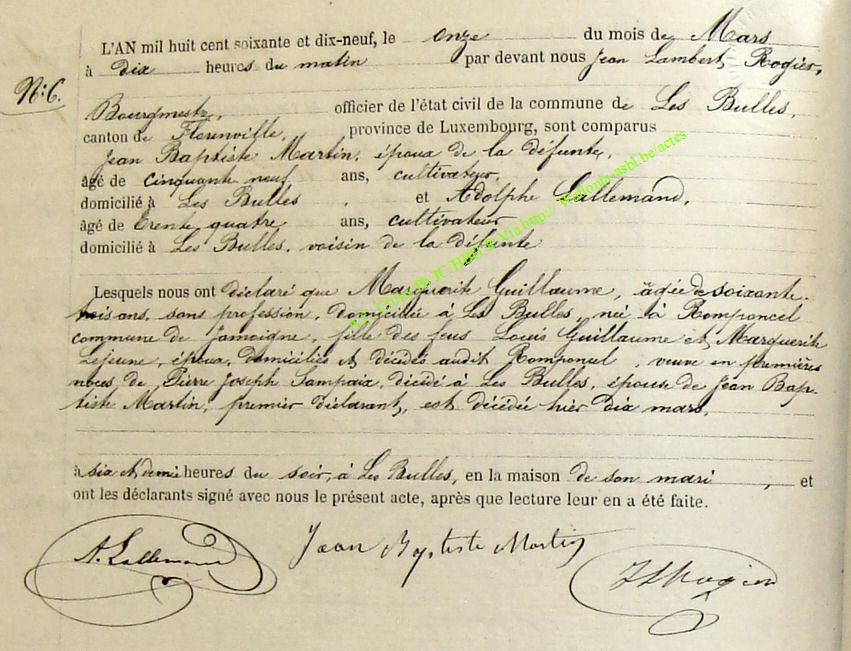 L'AN mil huit cent soixante et dix-neuf, le onze du mois de Mars
à dix heures du matin par devant nous Jean Lambert Rogier,
N: 6.
Bourgmestre, officier de l'état civil de la commune de Les Bulles,
canton de Florenville, province de Luxembourg, sont comparus
Jean Baptiste Martin, époux de la défunte,
âgé de cinquante neuf ans, cultivateur,
domicilié à Les Bulles, et Adolphe Lallemand,
âgé de trente quatre ans, cultivateur
domicilié à Les Bulles, voisin de la défunte
Lesquels nous ont déclaré que Marguerite Guillaume, âgée de soixante-
trois ans, sans profession, domiciliée à Les Bulles, née à Romponcel
commune de Jamoigne, fille des feus Louis Guillaume et Marguerite
Lejeune, époux, domiciliés et décédés audit Romponcel, veuve en premières
noces de Pierre Joseph Sampaix, décédé à Les Bulles, épouse de Jean Bap-
tiste Martin, premier déclarant, est décédée hier dix mars,
à six et demie heures du soir, à Les Bulles, en la maison de son mari, et
ont les déclarants signé avec nous le présent acte, après que lecture leur en a été faite.
A. Lallemand Jean Baptiste Martin JLRogier